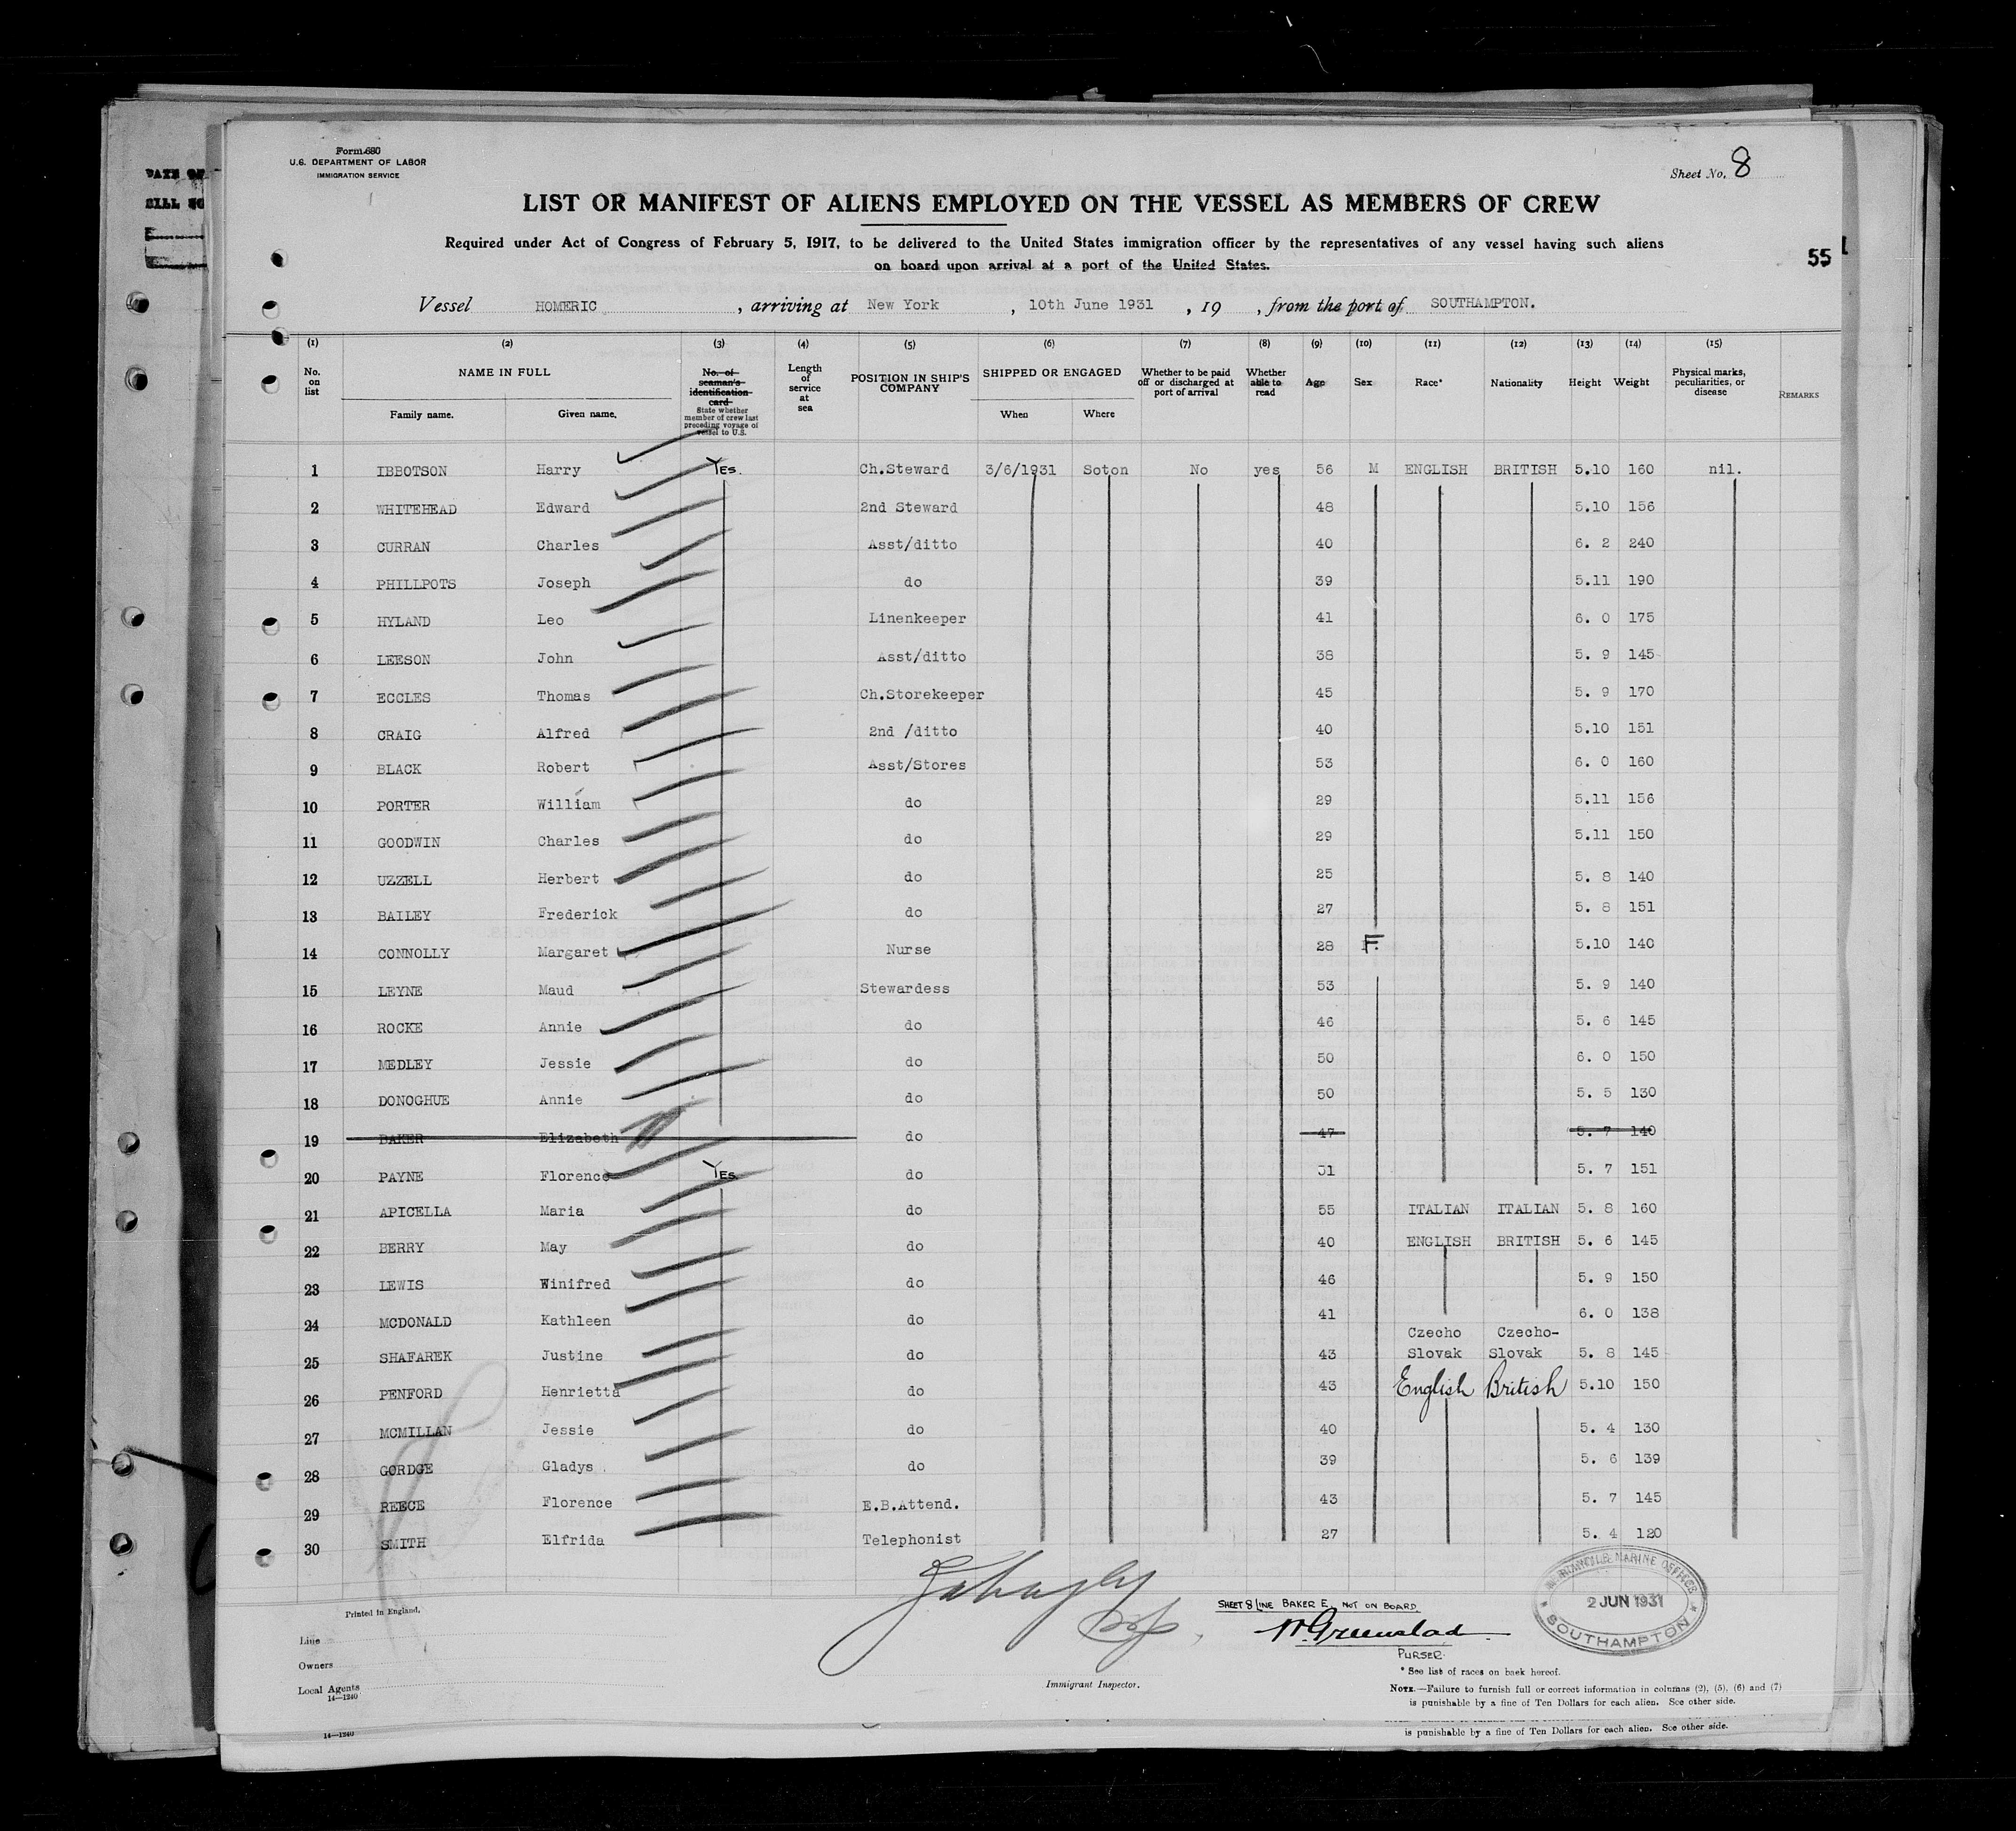 Form 680
U.S. DEPARTMENT OF LABOR
IMMIGRATION SERVICE
Sheet No. 8
LIST OR MANIFEST OF ALIENS EMPLOYED ON THE VESSEL AS MEMBERS OF CREW
Required under Act of Congress of February 5, 1917, to be delivered to the United States immigration officer by the representatives of any vessel having such aliens
on board upon arrival at a port of the United States.
55
Vessel HOMERIC , arriving at New York , 10th June 1931 , 19 , from the port of SOUTHAMPTON.
(1) (2) (3) (4) (5) (6) (7) (8) (9) (10) (11) (12) (13) (14) (15)
No. on list NAME IN FULL Family name. Given name. No. of seaman's identification card State whether member of crew last preceding voyage of vessel to U.S. Length of service at sea POSITION IN SHIP'S COMPANY SHIPPED OR ENGAGED When Where Whether to be paid off or discharged at port of arrival Whether able to read Age Sex Race* Nationality Height Weight Physical marks, peculiarities, or disease REMARKS
1 IBBOTSON Harry YES. Ch.Steward 3/6/1931 Soton No yes 56 M ENGLISH BRITISH 5.10 160 nil.
2 WHITEHEAD Edward 2nd Steward 48 5.10 156
3 CURRAN Charles Asst/ditto 40 6. 2 240
4 PHILLPOTS Joseph do 39 5.11 190
5 HYLAND Leo Linenkeeper 41 6. 0 175
6 LEESON John Asst/ditto 38 5. 9 145
7 ECCLES Thomas Ch.Storekeeper 45 5. 9 170
8 CRAIG Alfred 2nd /ditto 40 5.10 151
9 BLACK Robert Asst/Stores 53 6. 0 160
10 PORTER William do 29 5.11 156
11 GOODWIN Charles do 29 5.11 150
12 UZZELL Herbert do 25 5. 8 140
13 BAILEY Frederick do 27 5. 8 151
14 CONNOLLY Margaret Nurse 28 F. 5.10 140
15 LEYNE Maud Stewardess 53 5. 9 140
16 ROCKE Annie do 46 5. 6 145
17 MEDLEY Jessie do 50 6. 0 150
18 DONOGHUE Annie do 50 5. 5 130
19 BAKER Elizabeth do 47 5. 7 140
20 PAYNE Florence YES. do 31 5. 7 151
21 APICELLA Maria do 55 ITALIAN ITALIAN 5. 8 160
22 BERRY May do 40 ENGLISH BRITISH 5. 6 145
23 LEWIS Winifred do 46 5. 9 150
24 MCDONALD Kathleen do 41 6. 0 138
25 SHAFAREK Justine do 43 Czecho Slovak Czecho- Slovak 5. 8 145
26 PENFORD Henrietta do 43 English British 5.10 150
27 MCMILLAN Jessie do 40 5. 4 130
28 GORDGE Gladys . do 39 5. 6 139
29 REECE Florence E.B.Attend. 43 5. 7 145
30 SMITH Elfrida Telephonist 27 5. 4 120
Printed in England.
Line
Owners
Local Agents
14—1240
Immigrant Inspector.
SHEET 8 LINE BAKER E. NOT ON BOARD
PURSER.
MERCANTILE MARINE OFFICE
2 JUN 1931
SOUTHAMPTON
* See list of races on back hereof.
NOTE.—Failure to furnish full or correct information in columns (2), (5), (6) and (7)
is punishable by a fine of Ten Dollars for each alien. See other side.
is punishable by a fine of Ten Dollars for each alien. See other side.
14—1240